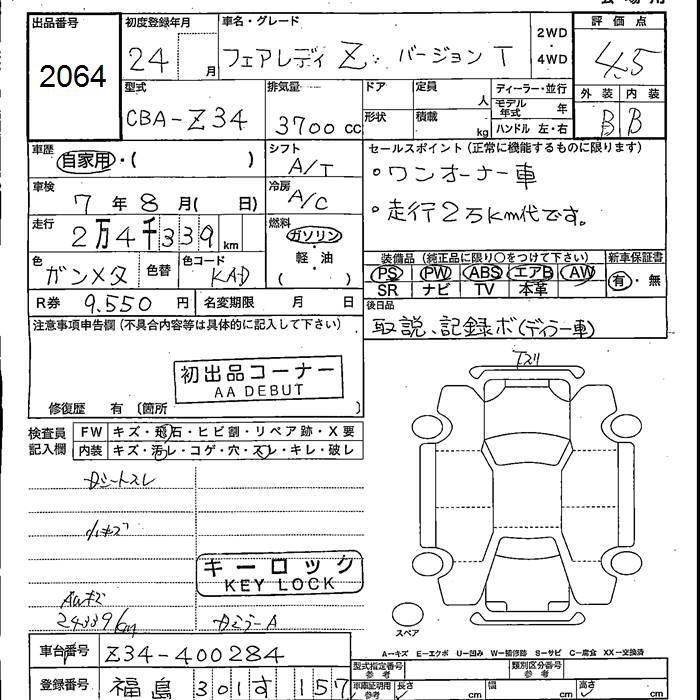 出品番号
2064
初度登録年月
24 月
車名・グレード
フェアレディ Z: バージョン T
2WD
・
4WD
評価点
4.5
外装 内装
B B
型式
CBA-Z34
排気量
3700 cc
ドア
形状
定員 人
積載 kg
ディーラー・並行
モデル年式 年
ハンドル 左・右
車歴
自家用・( )
シフト
A/T
セールスポイント(正常に機能するものに限ります)
・ワンオーナー車
・走行2万km代です。
車検
7年8月( 日)
冷房
A/C
走行
2万4千339km
燃料
ガソリン
・
軽・油
( )
色
ガンメタ
色替
色コード
KAD
装備品(純正品に限り○をつけて下さい)
PS PW ABS エアB AW
SR ナビ TV 本革
新車保証書
有・無
R券 9,550 円
名変期限 月 日
後日品
取説、記録ボ(ディラー車)
注意事項申告欄(不具合内容等は具体的に記入して下さい)
初出品コーナー
AA DEBUT
修復歴 有 〔箇所 〕
検査員
記入欄
FW キズ・飛石・ヒビ割・リペア跡・X要
内装 キズ・汚レ・コゲ・穴・スレ・キレ・破レ
キーロック
KEY LOCK
AWキズ
24339km
スペア
A-キズ E-エクボ U-凹み W-補修跡 S-サビ C-腐食 XX-交換済
車台番号
Z34-400284
型式指定番号
参考
類別区分番号
参考
登録番号
福島 301す157
車庫証明用
参考
長さ cm
幅 cm
高さ cm